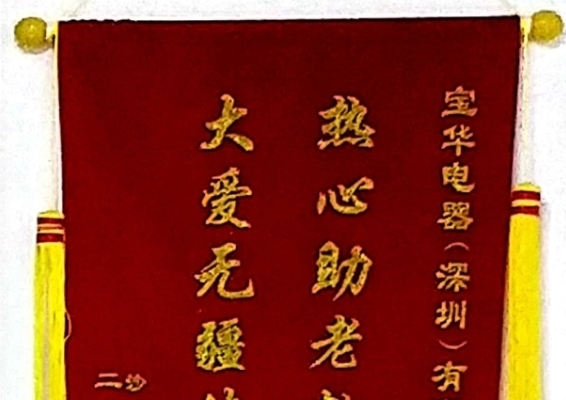 宝华电器（深圳）有
热心助老
大爱无疆
二沙